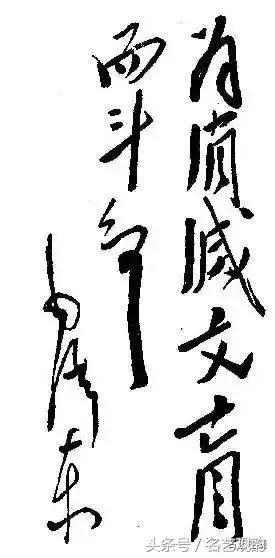 为消灭文盲
而斗争
毛泽东
头条号／客艺观韵